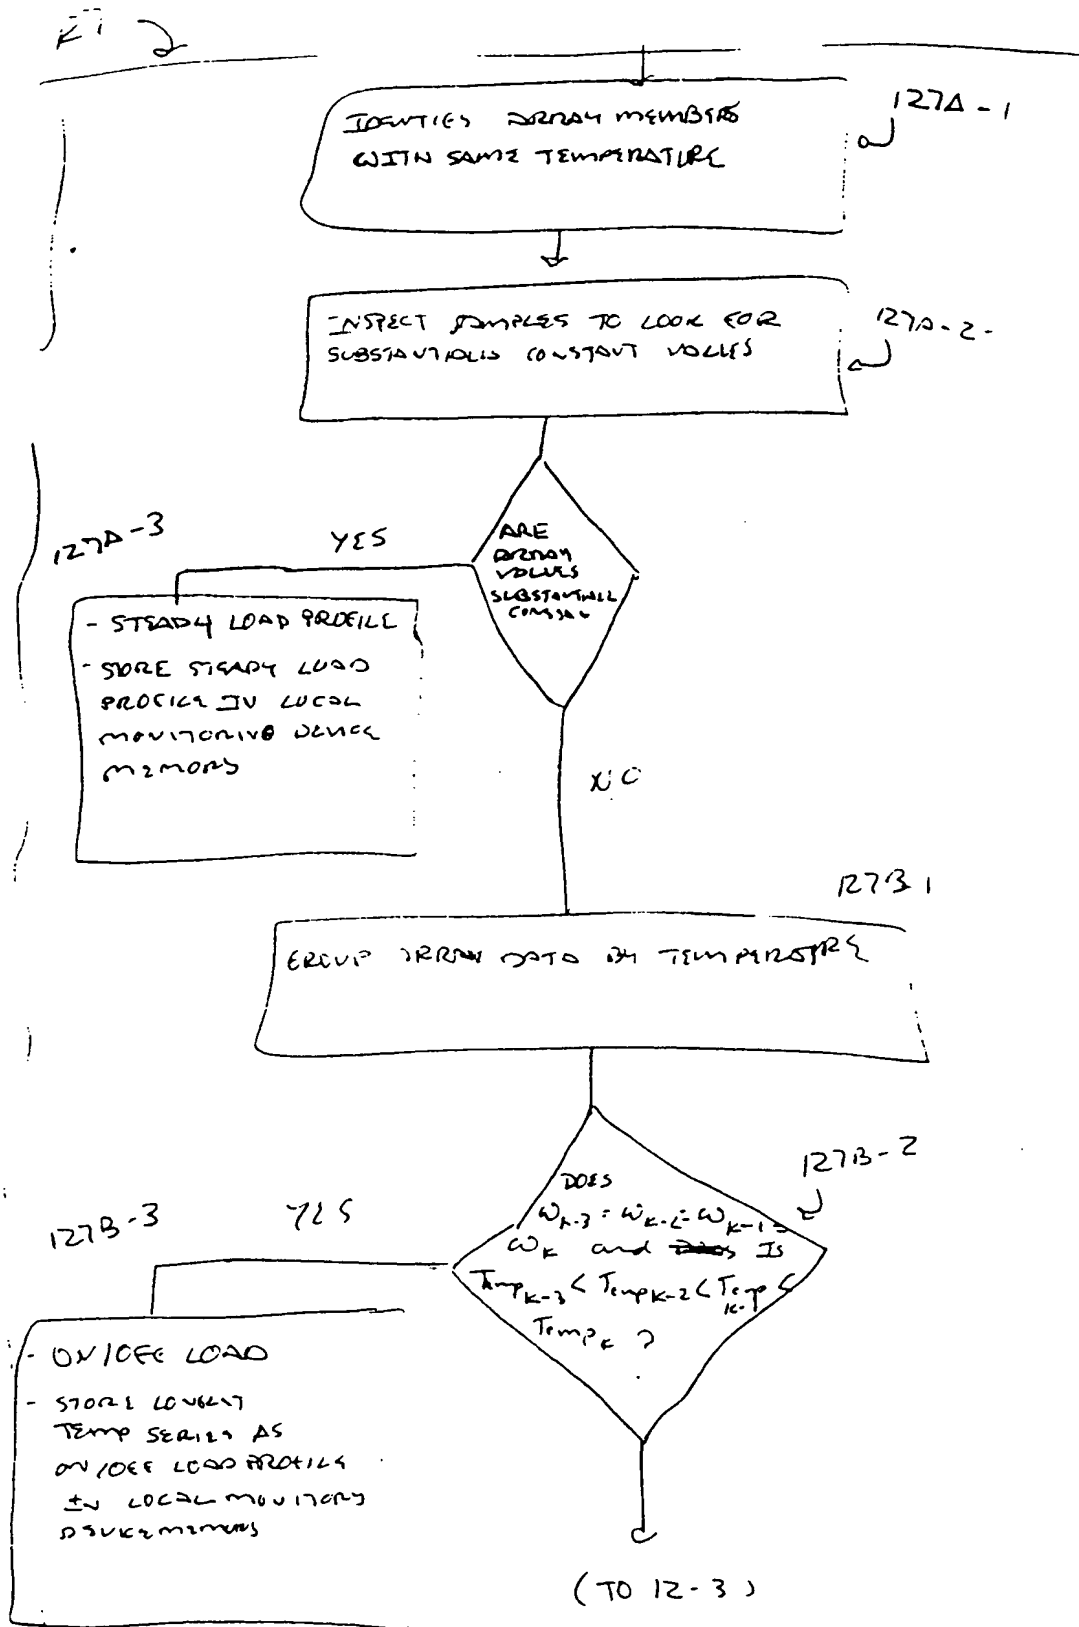 127A-1
IDENTIES ARRAY MEMBERS
WITH SAME TEMPERATURE
127A-2
INSPECT SAMPLES TO LOOK FOR
SUBSTANTIALLY CONSTANT VALUES
127A-3
YES
ARE
ARRAY
VALUES
SUBSTANTIALL
- STEADY LOAD PROFILE
- STORE STEADY LOAD
PROFILE IN LOCAL
MONITORING DEVICE
MEMORY
NO
127B-1
GROUP ARRAY DATA BY TEMPERATURE
127B-2
DOES
ω_{k-3} = ω_{k-2} = ω_{k-1} =
ω_k and Is
Temp_{k-3} < Temp_{k-2} < Temp_{k-1} <
Temp_k ?
127B-3
YES
- ON/OFF LOAD
- STORE LOWEST
TEMP SERIES AS
ON/OFF LOAD PROFILE
IN LOCAL MONITORY
DEVICE MEMORY
(TO 12-3)